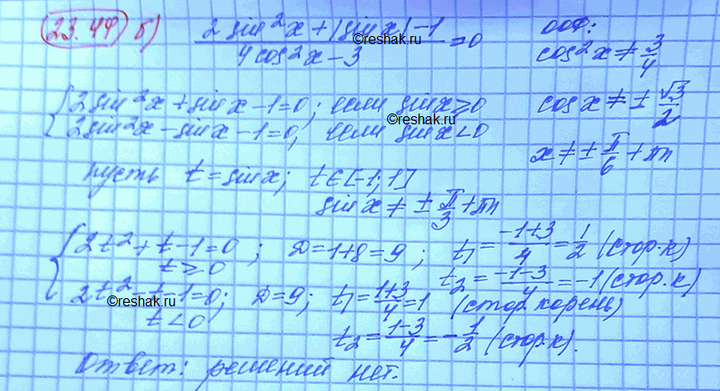 23.44 б) (2 sin²x + |sin x| - 1) / (4 cos²x - 3) = 0
ООФ:
cos²x ≠ 3/4
{ 2sin²x + sinx - 1 = 0; если sinx ≥ 0
2sin²x - sinx - 1 = 0, если sinx < 0
cosx ≠ ± √3/2
x ≠ ± π/6 + πn
пусть t = sinx; t ∈ [-1; 1]
sinx ≠ ± π/3 + πn
{ 2t² + t - 1 = 0; D = 1 + 8 = 9; t₁ = (-1+3)/4 = 1/2 (стор.к)
t ≥ 0
t₂ = (-1-3)/4 = -1 (стор.к)
2t² - t - 1 = 0; D = 9; t₁ = (1+3)/4 = 1 (стор. корень)
t < 0
t₂ = (1-3)/4 = -1/2 (стор.к).
Ответ: решений нет.
©reshak.ru
©reshak.ru
©reshak.ru
©reshak.ru